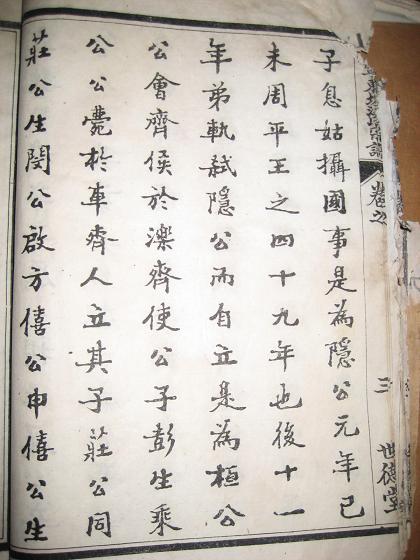 子息姑攝國事是為隱公元年己
未周平王之四十九年也後十一
年弟軌弒隱公而自立是為桓公
公會齊侯於濼齊使公子彭生乘
公公薨於車齊人立其子莊公同
莊公生閔公啟方僖公申僖公生
卷之
三
世德堂